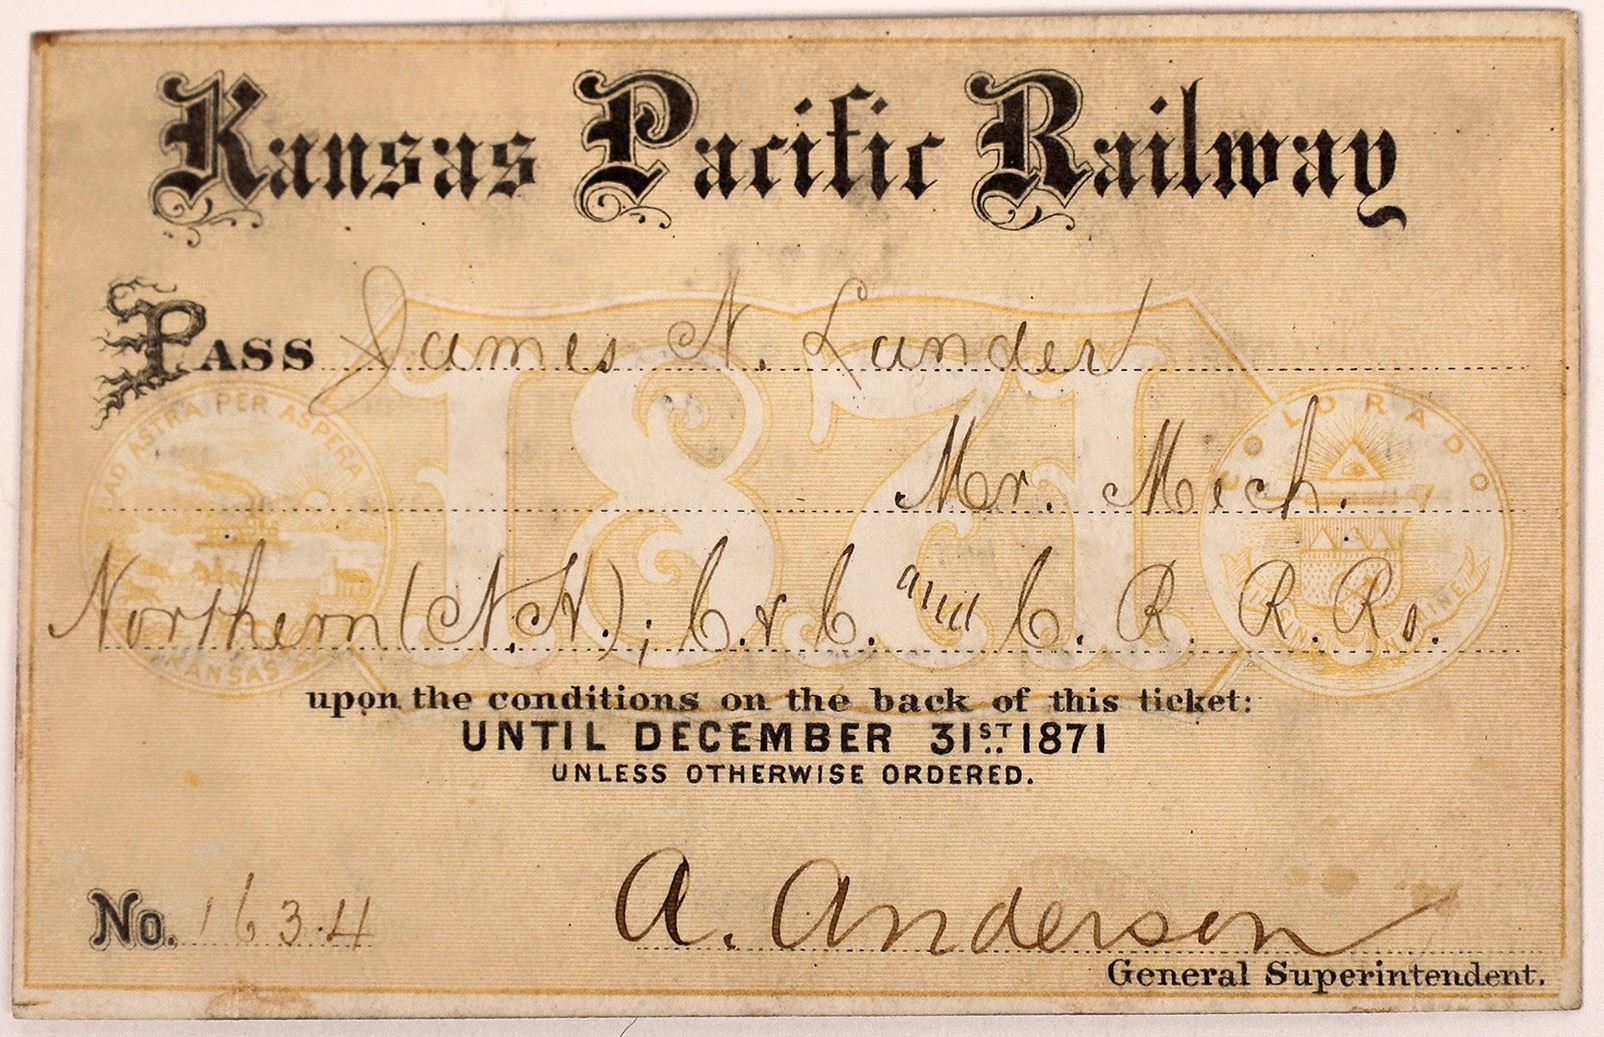 Kansas Pacific Railway
PASS James N. Lander
Mr. Mech.
Northern (N.H.); C. & C. and C. R. R. Rs.
upon the conditions on the back of this ticket:
UNTIL DECEMBER 31ST 1871
UNLESS OTHERWISE ORDERED.
No. 1634
A. Anderson
General Superintendent.
1871
AD ASTRA PER ASPERA
KANSAS
COLORADO